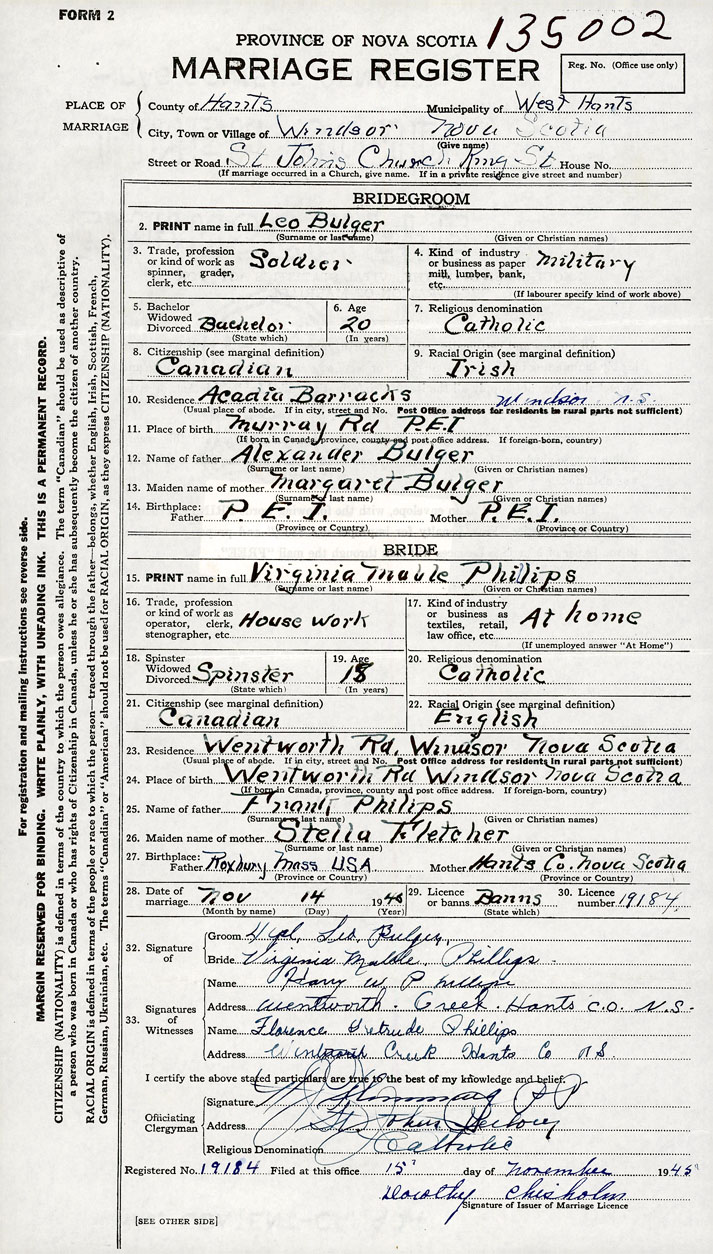 FORM 2
135002
PROVINCE OF NOVA SCOTIA
MARRIAGE REGISTER
Reg. No. (Office use only)
PLACE OF MARRIAGE
County of Hants Municipality of West Hants
City, Town or Village of Windsor Nova Scotia
(Give name)
Street or Road St Johns Church King St House No.
(If marriage occurred in a Church, give name. If in a private residence give street and number)
BRIDEGROOM
2. PRINT name in full Leo Bulger
(Surname or last name) (Given or Christian names)
3. Trade, profession or kind of work as spinner, grader, clerk, etc. Soldier
4. Kind of industry or business as paper mill, lumber, bank, etc. Military
(If labourer specify kind of work above)
5. Bachelor Widowed Divorced Bachelor
(State which)
6. Age 20
(In years)
7. Religious denomination
Catholic
8. Citizenship (see marginal definition)
Canadian
9. Racial Origin (see marginal definition)
Irish
10. Residence Acadia Barracks Windsor N.S.
(Usual place of abode. If in city, street and No. Post Office address for residents in rural parts not sufficient)
11. Place of birth Murray Rd P.E.I
(If born in Canada, province, county and post office address. If foreign-born, country)
12. Name of father Alexander Bulger
(Surname or last name) (Given or Christian names)
13. Maiden name of mother Margaret Bulger
(Surname or last name) (Given or Christian names)
14. Birthplace: Father P. E. I. Mother P.E.I.
(Province or Country) (Province or Country)
BRIDE
15. PRINT name in full Virginia Mable Philips
(Surname or last name) (Given or Christian names)
16. Trade, profession or kind of work as operator, clerk, stenographer, etc. House Work
17. Kind of industry or business as textiles, retail, law office, etc. At home
(If unemployed answer "At Home")
18. Spinster Widowed Divorced Spinster
(State which)
19. Age 18
(In years)
20. Religious denomination
Catholic
21. Citizenship (see marginal definition)
Canadian
22. Racial Origin (see marginal definition)
English
23. Residence Wentworth Rd. Windsor Nova Scotia
(Usual place of abode. If in city, street and No. Post Office address for residents in rural parts not sufficient)
24. Place of birth Wentworth Rd Windsor Nova Scotia
(If born in Canada, province, county and post office address. If foreign-born, country)
25. Name of father Frank Philips
(Surname or last name) (Given or Christian names)
26. Maiden name of mother Stella Fletcher
(Surname or last name) (Given or Christian names)
27. Birthplace: Father Roxbury Mass USA Mother Hants Co. Nova Scotia
(Province or Country) (Province or Country)
28. Date of marriage Nov 14 1945
(Month by name) (Day) (Year)
29. Licence or banns Banns
(State which)
30. Licence number 19184
32. Signature of
Groom Leo Bulger
Bride Virginia Mable Phillips
33. Signatures of Witnesses
Name Harry W Phillips
Address Wentworth Creek Hants C.O. N.S.
Name Florence Gertrude Phillips
Address Wentworth Creek Hants Co N.S.
I certify the above stated particulars are true to the best of my knowledge and belief.
Officiating Clergyman
Signature P P
Address St Johns
Religious Denomination Catholic
Registered No. 19184 Filed at this office 15 day of November 1945
Dorothy Chisholm
Signature of Issuer of Marriage Licence
[SEE OTHER SIDE]
For registration and mailing instructions see reverse side.
MARGIN RESERVED FOR BINDING. WRITE PLAINLY, WITH UNFADING INK. THIS IS A PERMANENT RECORD.
CITIZENSHIP (NATIONALITY) is defined in terms of the country to which the person owes allegiance. The term "Canadian" should be used as descriptive of
a person who was born in Canada or who has rights of Citizenship in Canada, unless he or she has subsequently become the citizen of another country.
RACIAL ORIGIN is defined in terms of the people or race to which the person—traced through the father—belongs, whether English, Irish, Scottish, French,
German, Russian, Ukrainian, etc. The terms "Canadian" or "American" should not be used for RACIAL ORIGIN, as they express CITIZENSHIP (NATIONALITY).